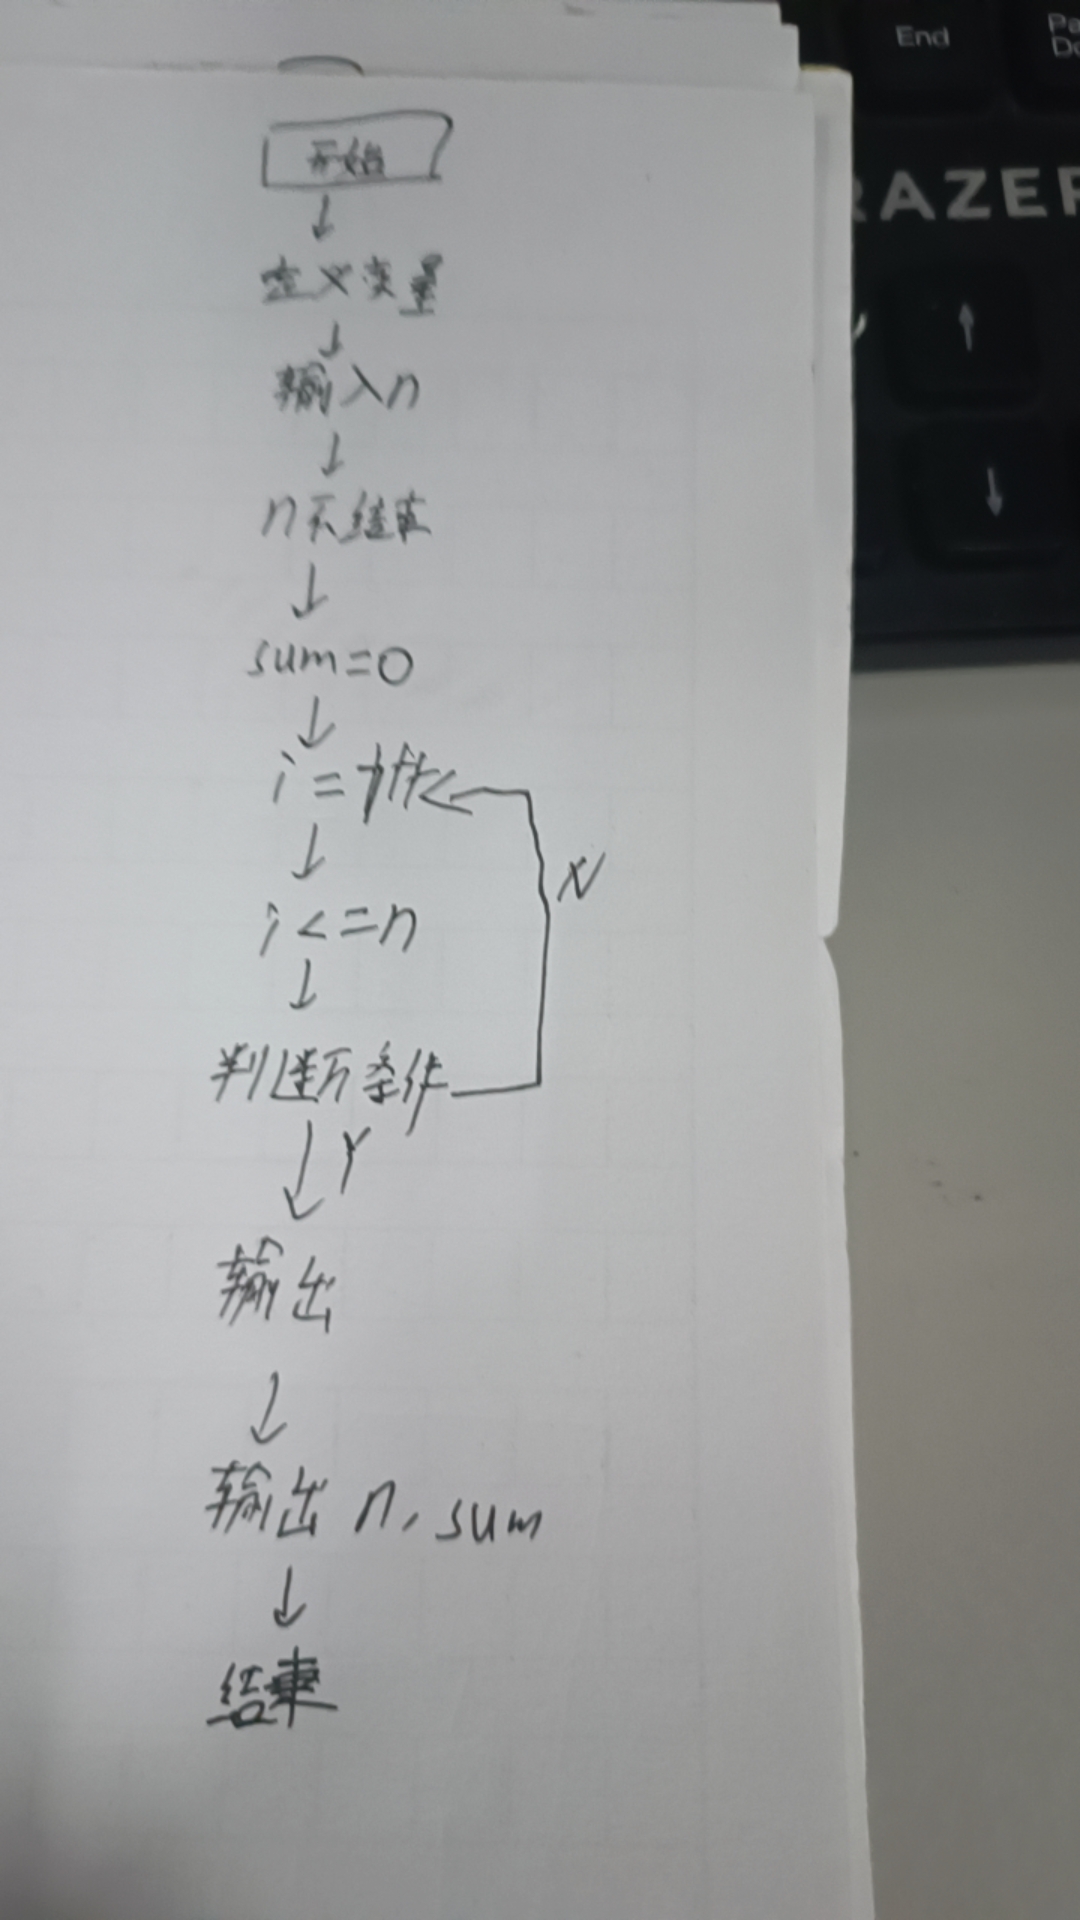 End
RAZER
开始
↓
定义变量
↓
输入n
↓
n不结束
↓
sum=0
↓
i=
↓
i<=n
N
↓
判断条件
↓ Y
输出
↓
输出 n, sum
↓
结束